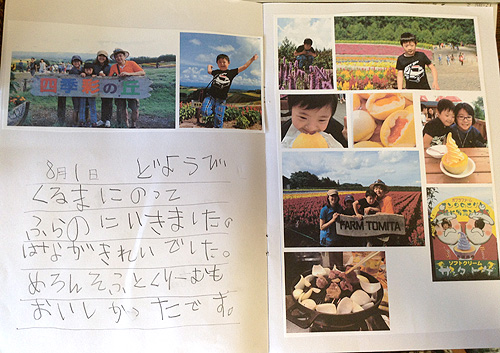 四季彩の丘
8月1日 どようび
くるまにのって
ふらのにいきました。
はながきれいでした。
めろんそふとくりーむも
おいしかったです。
FARM TOMITA
ソフトクリーム